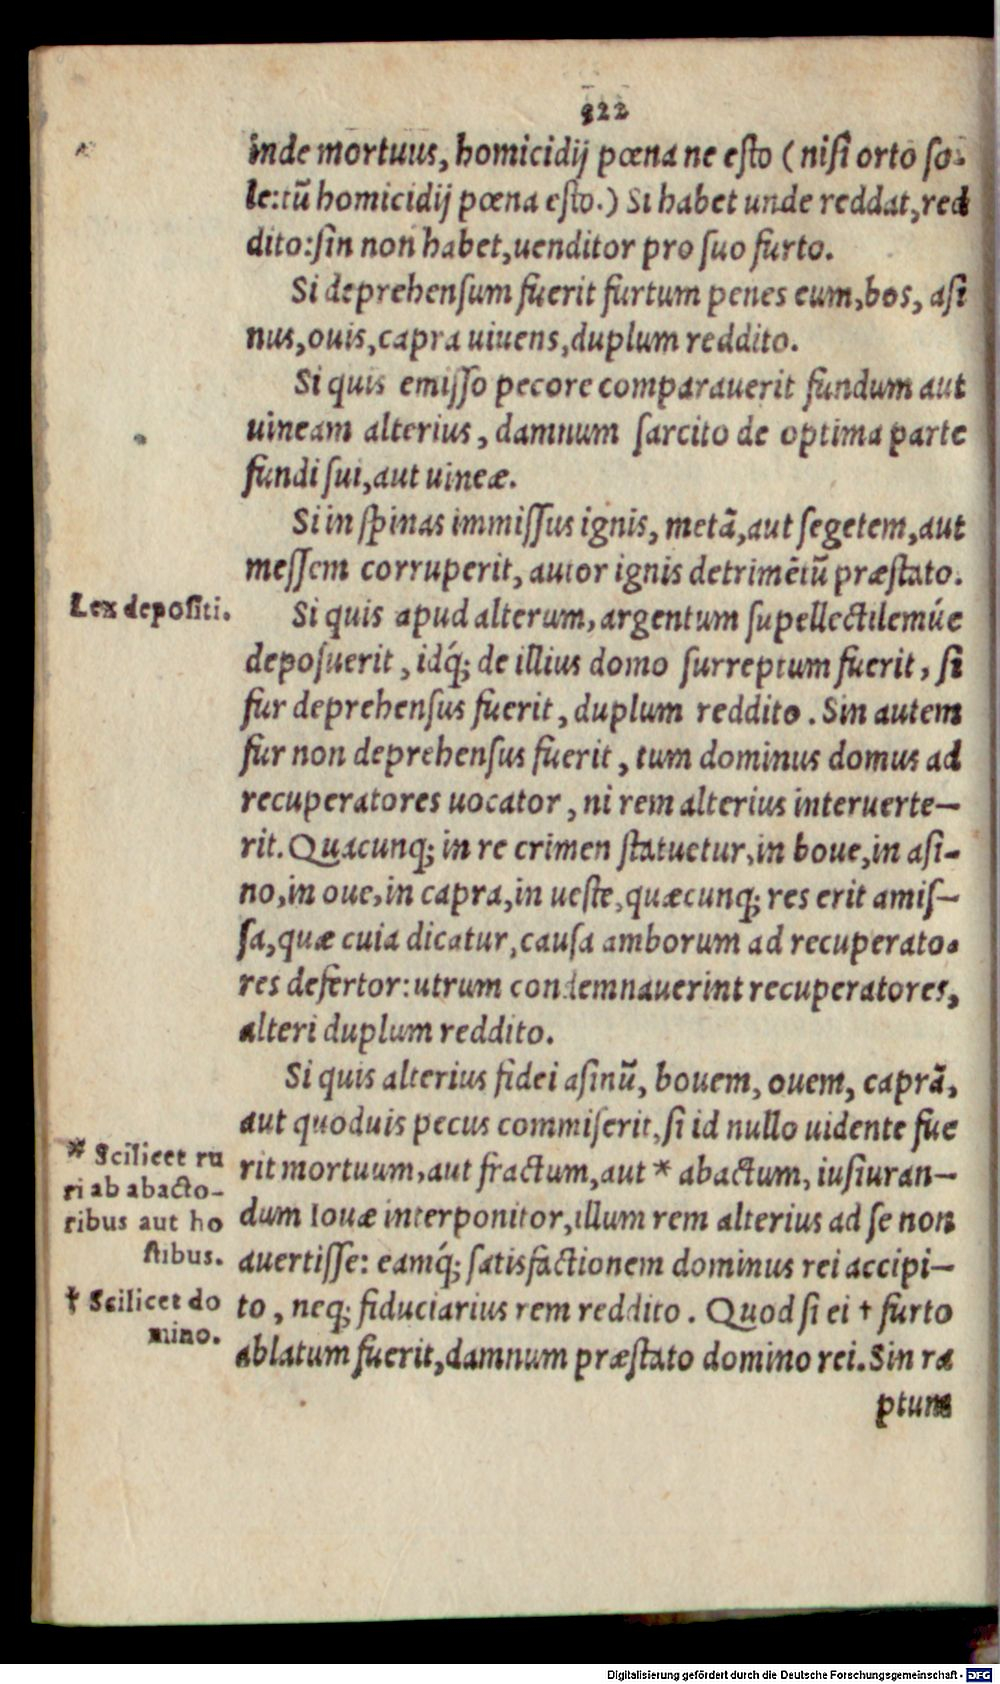 122
inde mortuus, homicidij pœna ne esto (nisi orto so-
le: tũ homicidij pœna esto.) Si habet unde reddat, red
dito: sin non habet, uenditor pro suo furto.
Si deprehensum fuerit furtum penes eum, bos, asi
nus, ouis, capra uiuens, duplum reddito.
Si quis emisso pecore comparauerit fundum aut
uineam alterius, damnum sarcito de optima parte
fundi sui, aut uineæ.
Si in spinas immissus ignis, metã, aut segetem, aut
messem corruperit, autor ignis detrimẽtũ præstato.
Lex depositi.
Si quis apud alterum, argentum supellectilemúe
deposuerit, idq́; de illius domo surreptum fuerit, si
fur deprehensus fuerit, duplum reddito. Sin autem
fur non deprehensus fuerit, tum dominus domus ad
recuperatores uocator, ni rem alterius interuerte-
rit. Quacunq; in re crimen statuetur, in boue, in asi-
no, in oue, in capra, in ueste, quæcunq; res erit amis-
sa, quæ cuia dicatur, causa amborum ad recuperato-
res defertor: utrum condemnauerint recuperatores,
alteri duplum reddito.
Si quis alterius fidei asinũ, bouem, ouem, caprã,
aut quoduis pecus commiserit, si id nullo uidente fue
rit mortuum, aut fractum, aut * abactum, iusiuran-
dum Iouæ interponitor, illum rem alterius ad se non
auertisse: eamq́; satisfactionem dominus rei accipi-
to, neq; fiduciarius rem reddito. Quod si ei † furto
ablatum fuerit, damnum præstato domino rei. Sin ra
ptum
* Scilicet ru
ri ab abacto-
ribus aut ho
stibus.
† Scilicet do
mino.
Digitalisierung gefördert durch die Deutsche Forschungsgemeinschaft - DFG